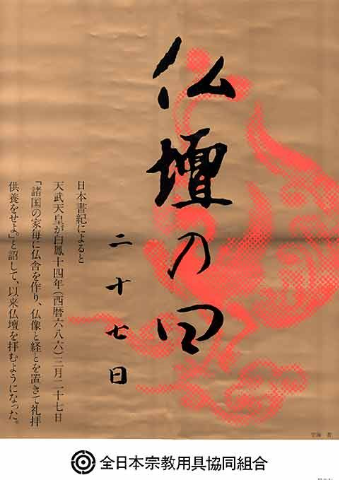 仏壇の日
二十七日
日本書紀によると
天武天皇が白鳳十四年(西暦六八六)三月二十七日
『諸国の家毎に仏舎を作り、仏像と経とを置きて礼拝
供養をせよ』と詔して、以来仏壇を拝むようになった。
全日本宗教用具協同組合